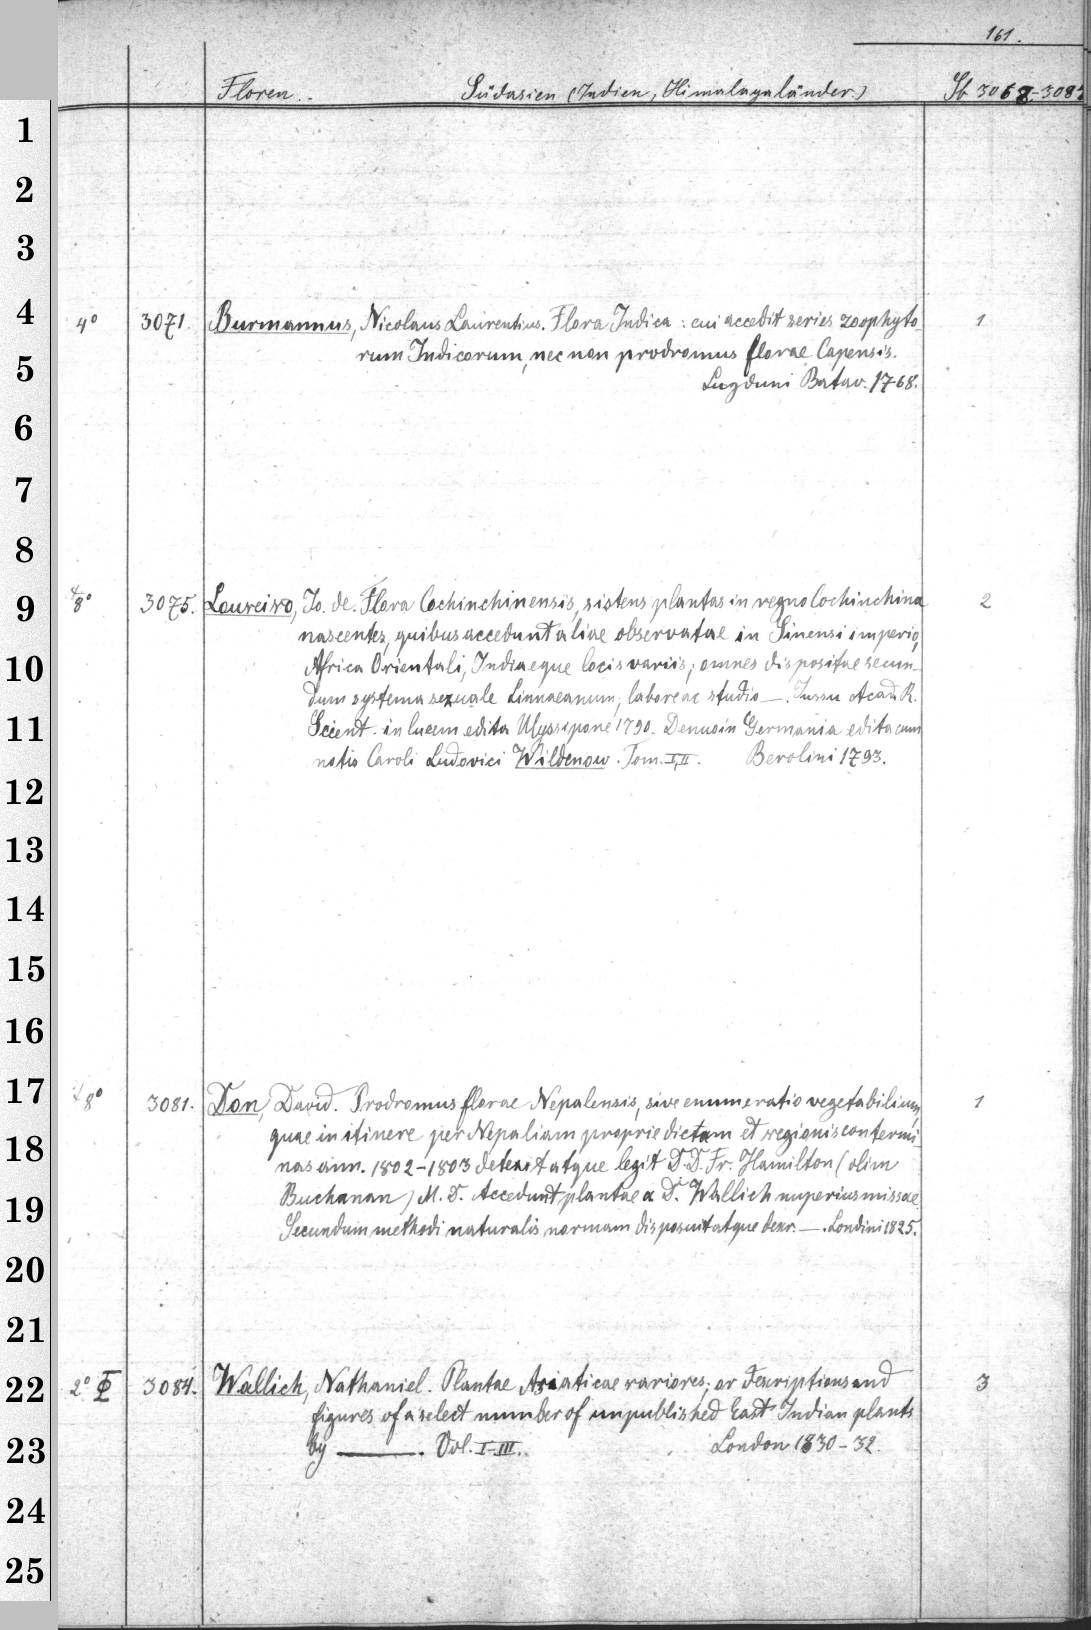 161.
Floren.. Südasien (Indien, Himalayaländer.) Sb 3068-308
1
2
3
4
4° 3071. Burmannus, Nicolaus Laurentius. Flora Indica : cui accedit series zoophyto- 1
rum Indicorum, nec non prodromus florae Capensis.
5
Lugduni Batav. 1768.
6
7
8
9
8° 3075. Loureiro, Jo. de. Flora Cochinchinensis, sistens plantas in regno Cochinchina 2
nascentes, quibus accedunt aliae observatae in Sinensi imperio,
10
Africa Orientali, Indiaeque locis variis; omnes dispositae secun-
dum systema sexuale Linnaeanum, labore ac studio —. Jussu Acad. R.
11
Scient. in lucem edita Ulyssipone 1790. Denuo in Germania edita cum
notis Caroli Ludovici Wildenow. Tom. I, II. Berolini 1793.
12
13
14
15
16
17
8° 3081. Don, David. Prodromus florae Nepalensis, sive enumeratio vegetabilium, 1
quae in itinere per Nepaliam proprie dictam et regionis contermi-
18
nas ann. 1802-1803 detexit atque legit D.D. Fr. Hamilton (olim
Buchanan) M. D. Accedunt plantae a D. Wallich nuperius missae
19
Secundum methodi naturalis normam disposuit atque descr. —. Londini 1825.
20
21
22
2° 3084. Wallich, Nathaniel. Plantae Asiaticae rariores; or Descriptions and 3
figures of a select number of unpublished East Indian plants
23
by ———. Vol. I-III. London 1830-32.
24
25